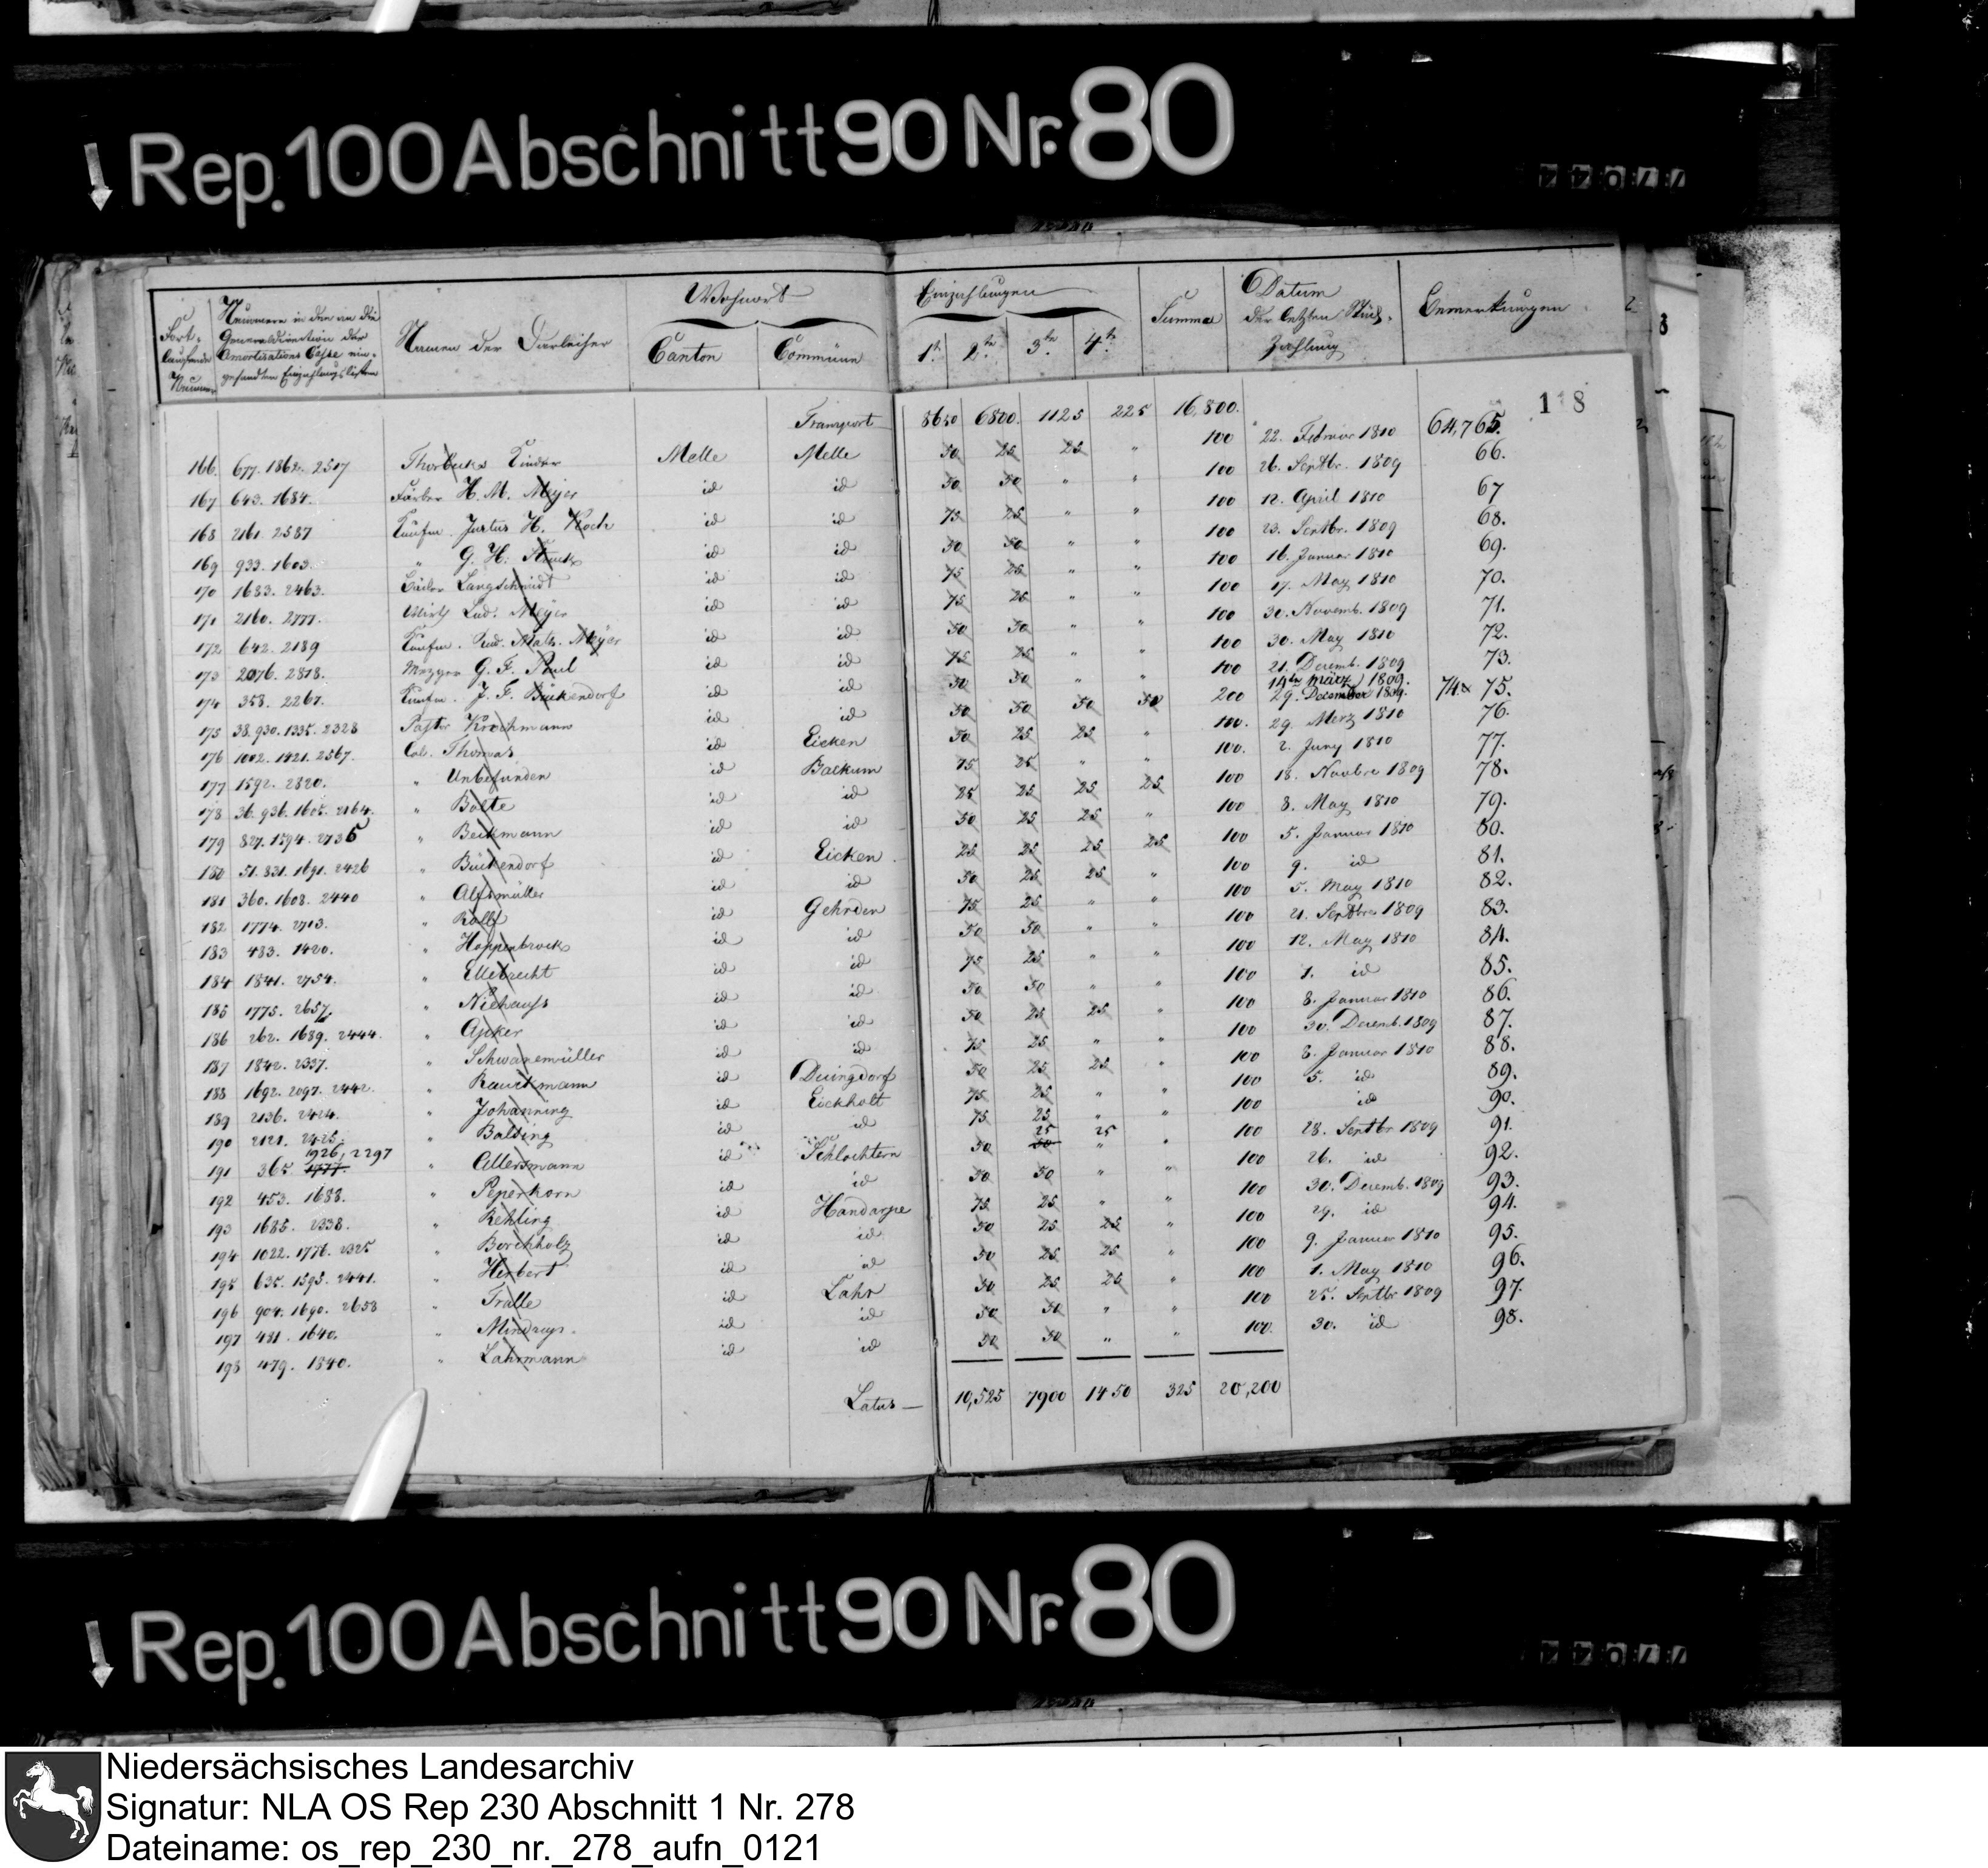 Rep. 100 Abschnitt 90 Nr. 80
Fort-laufende Nummer | Nummern in den an die Generaldirection der Amortisations Casse eingesandten Einzahlungslisten | Namen der Darleiher | Wohnort | Einzahlungen | Summa | Datum der letzten Rückzahlung | Bemerkungen
Canton | Commüne | 1te | 2te | 3te | 4te
118
Transport 8650 6800. 1125 225 16,800.
166. 677. 1862. 2517 Thorbecks Kinder Melle Melle 50 25 25 " 100 22. Februar 1810 64,765.
167 643. 1684. Färber H. M. Meyer id id 50 50 " " 100 26. Septbr. 1809 66.
168 2161. 2587 Kaufm. Justus H. Koch id id 75 25 " " 100 12. April 1810 67
169 933. 1603. " G. H. id id 50 50 " " 100 23. Septbr. 1809 68.
170 1683. 2463. Bäcker Langschmidt id id 75 25 " " 100 16. Januar 1810 69.
171 2160. 2777. Wirth Lud. Meyer id id 75 25 " " 100 17. May 1810 70.
172 642. 2189 Kaufm. Rud. Math. Meyer id id 50 50 " " 100 30. Novemb. 1809 71.
173 2076. 2818. Mezger G. F. Paul id id 75 25 " " 100 30. May 1810 72.
174 358. 2267. Kaufm. J. F. Bückendorf id id 50 50 " " 100 21. Decemb. 1809 73.
14ten März 1809.
175 38. 930. 1335. 2328 Pastor Krochmann id id 50 50 50 50 200 29. December 1809. 74 & 75.
176 1002. 1421. 2567. Col. Thomas id Eicken 50 25 25 " 100. 29. Merz 1810 76.
177 1592. 2820. " Unbefunden id Backum 75 25 " " 100. 2. Juny 1810 77.
178 36. 936. 1605. 2164. " Bolte id id 25 25 25 25 100 18. Novbre 1809 78.
179 827. 1594. 2735 " Beckmann id id 50 25 25 " 100 8. May 1810 79.
180 51. 831. 1691. 2426 " Bückendorf id Eicken 25 25 25 25 100 5. Januar 1810 80.
181 360. 1608. 2440 " Alfsmüller id id 50 25 25 " 100 9. id 81.
182 1774. 2713. " Rolf id Gehrden 75 25 " " 100 5. May 1810 82.
183 483. 1420. " Hoppenbrock id id 50 50 " " 100 21. Septbre 1809 83.
184 1841. 2754. " Ellebrecht id id 75 25 " " 100 12. May 1810 84.
185 1775. 2657. " Niehauss id id 50 50 " " 100 1. id 85.
186 262. 1689. 2444. " Apker id id 50 25 25 " 100 8. Januar 1810 86.
187 1842. 2337. " Schwanemüller id id 75 25 " " 100 30. Decemb. 1809 87.
188 1692. 2097. 2442. " Rauckmann id Duingdorf 50 25 25 " 100 8. Januar 1810 88.
189 2136. 2424. " Johanning id Eickholt 75 25 " " 100 5. id 89.
190 2121. 2425. " Balsing id id 75 25 " " 100 id 90.
1926, 2297 25 25
191 365 1777. " Allersmann id Schlochtern 50 50 " " 100 28. Septbr 1809 91.
192 453. 1688. " Peperkorn id id 50 50 " " 100 26. id 92.
193 1685. 2338. " Rehling id Handarpe 75 25 " " 100 30. Decemb. 1809 93.
194 1022. 1776. 2325 " Borckholz id id 50 25 25 " 100 29. id 94.
195 635. 1595. 2441. " Herbert id id 50 25 25 " 100 9. Januar 1810 95.
196 904. 1690. 2658 " Tralle id Lahr 50 25 25 " 100 1. May 1810 96.
197 481. 1640. " id id 50 50 " " 100 25. Septbr 1809 97.
198 479. 1840. " Lahrmann id id 50 50 " " 100. 30. id 98.
Latus 10,525 7900 1450 325 20,200
Rep. 100 Abschnitt 90 Nr. 80
Niedersächsisches Landesarchiv
Signatur: NLA OS Rep 230 Abschnitt 1 Nr. 278
Dateiname: os_rep_230_nr._278_aufn_0121